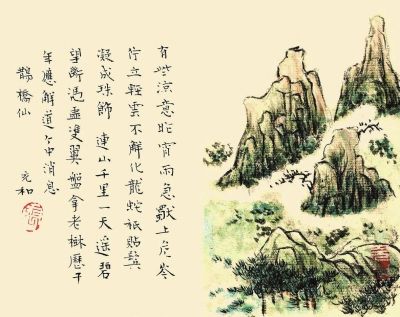 有些涼意昨宵雨急獨上危岑
佇立輕雲不解化龍蛇祇貼鬢
凝成珠飾 連山千里一天遥碧
望斷馮虛雙翼盤拿老樹歷千
年應解道个中消息
鵲橋仙 充和